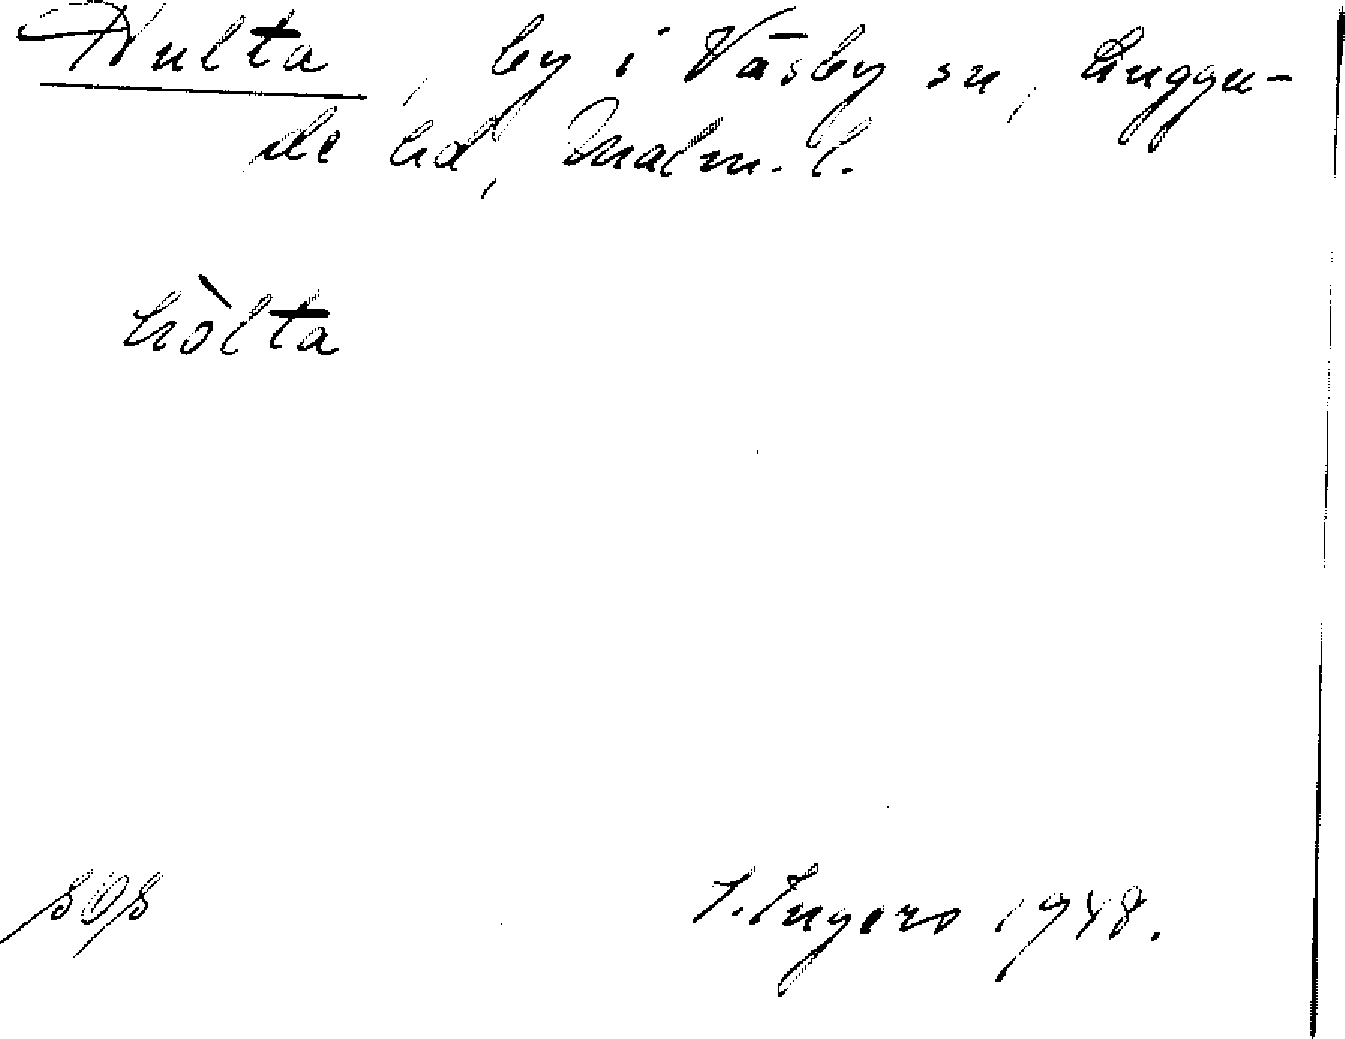 Hulta, by i Väsby sn, Luggu-
de hd, Malm. l.
hòlta
S. Ingers 1948.